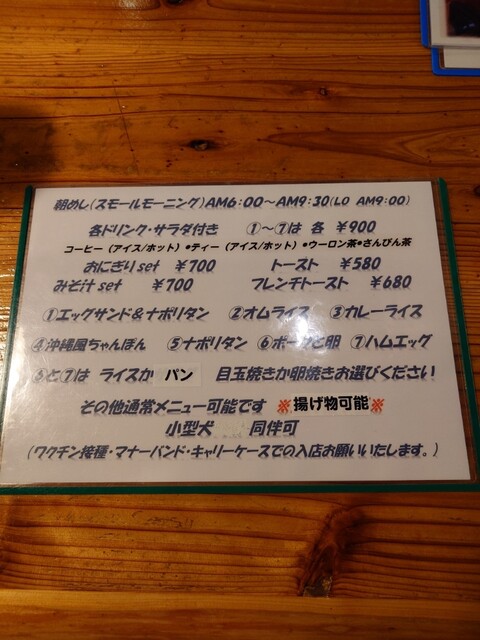 朝めし(スモールモーニング)AM6:00～AM9:30(LO AM9:00)
各ドリンク・サラダ付き ①～⑦は 各 ￥900
コーヒー（アイス/ホット）●ティー（アイス/ホット）●ウーロン茶●さんぴん茶
おにぎりset ￥700 トースト ￥580
みそ汁set ￥700 フレンチトースト ￥680
①エッグサンド＆ナポリタン ②オムライス ③カレーライス
④沖縄風ちゃんぽん ⑤ナポリタン ⑥ポークと卵 ⑦ハムエッグ
⑥と⑦は ライスか パン 目玉焼きか卵焼きお選びください
その他通常メニュー可能です ※揚げ物可能※
小型犬 同伴可
(ワクチン接種・マナーバンド・キャリーケースでの入店お願いいたします。)